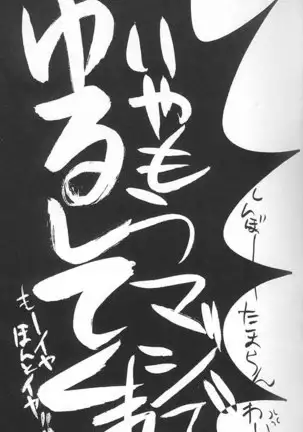 しんぼーーたまらん
わい
いやもうマジで
ゆるしてくれ
もーイヤ
ほんとイヤ!!